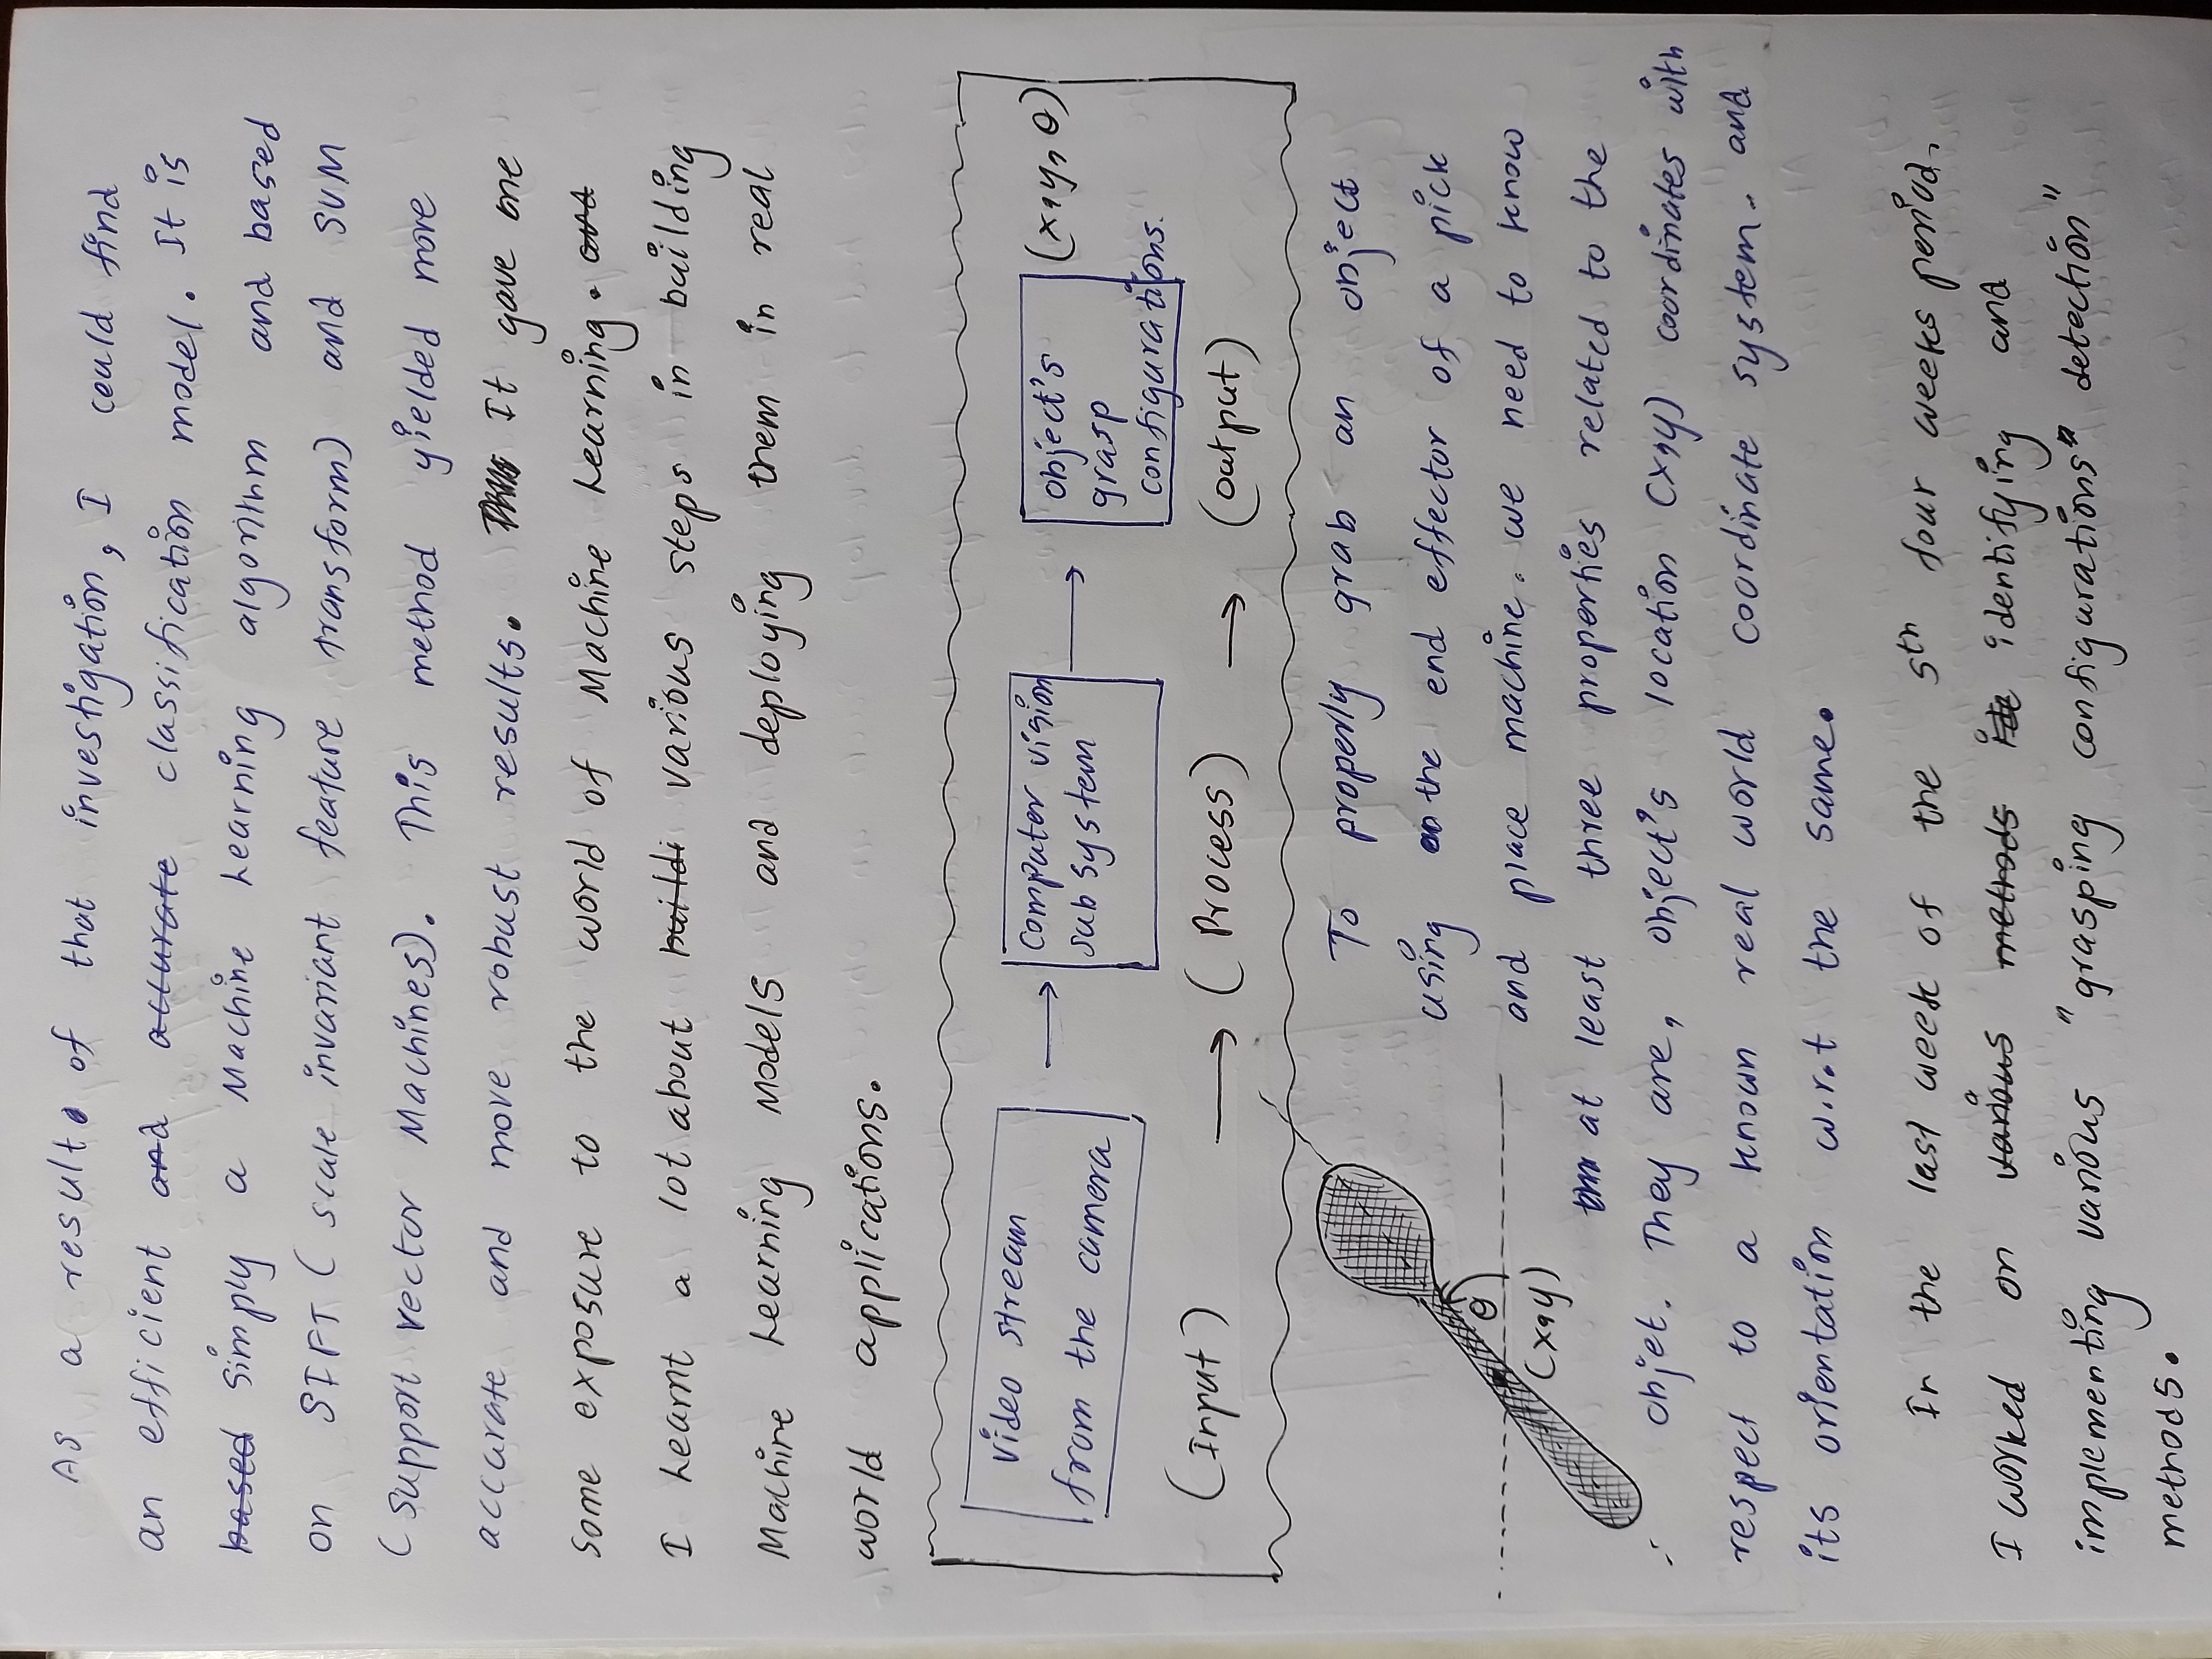 As a result of that investigation, I could find
an efficient and accurate classification model. It is
based simply a Machine Learning algorithm and based
on SIFT (scale invariant feature transform) and SVM
(support vector Machines). This method yielded more
accurate and more robust results. It gave me
some exposure to the world of Machine Learning. and
I Learnt a lot about buildi various steps in building
Machine Learning Models and deploying them in real
world applications.
Video stream
from the camera
computer vision
sub system
object's
grasp
configurations.
(x,y, θ)
(Input) → (Process) → (output)
θ
(x,y)
To properly grab an object
using the end effector of a pick
and place machine. we need to know
at least three properties related to the
objet. They are, object's location (x,y) coordinates with
respect to a known real world coordinate system. and
its orientation w.r.t the same.
In the last week of the 5th four weeks period,
I worked on various methods ide identifying and
implementing various "grasping configurations" detection"
methods.